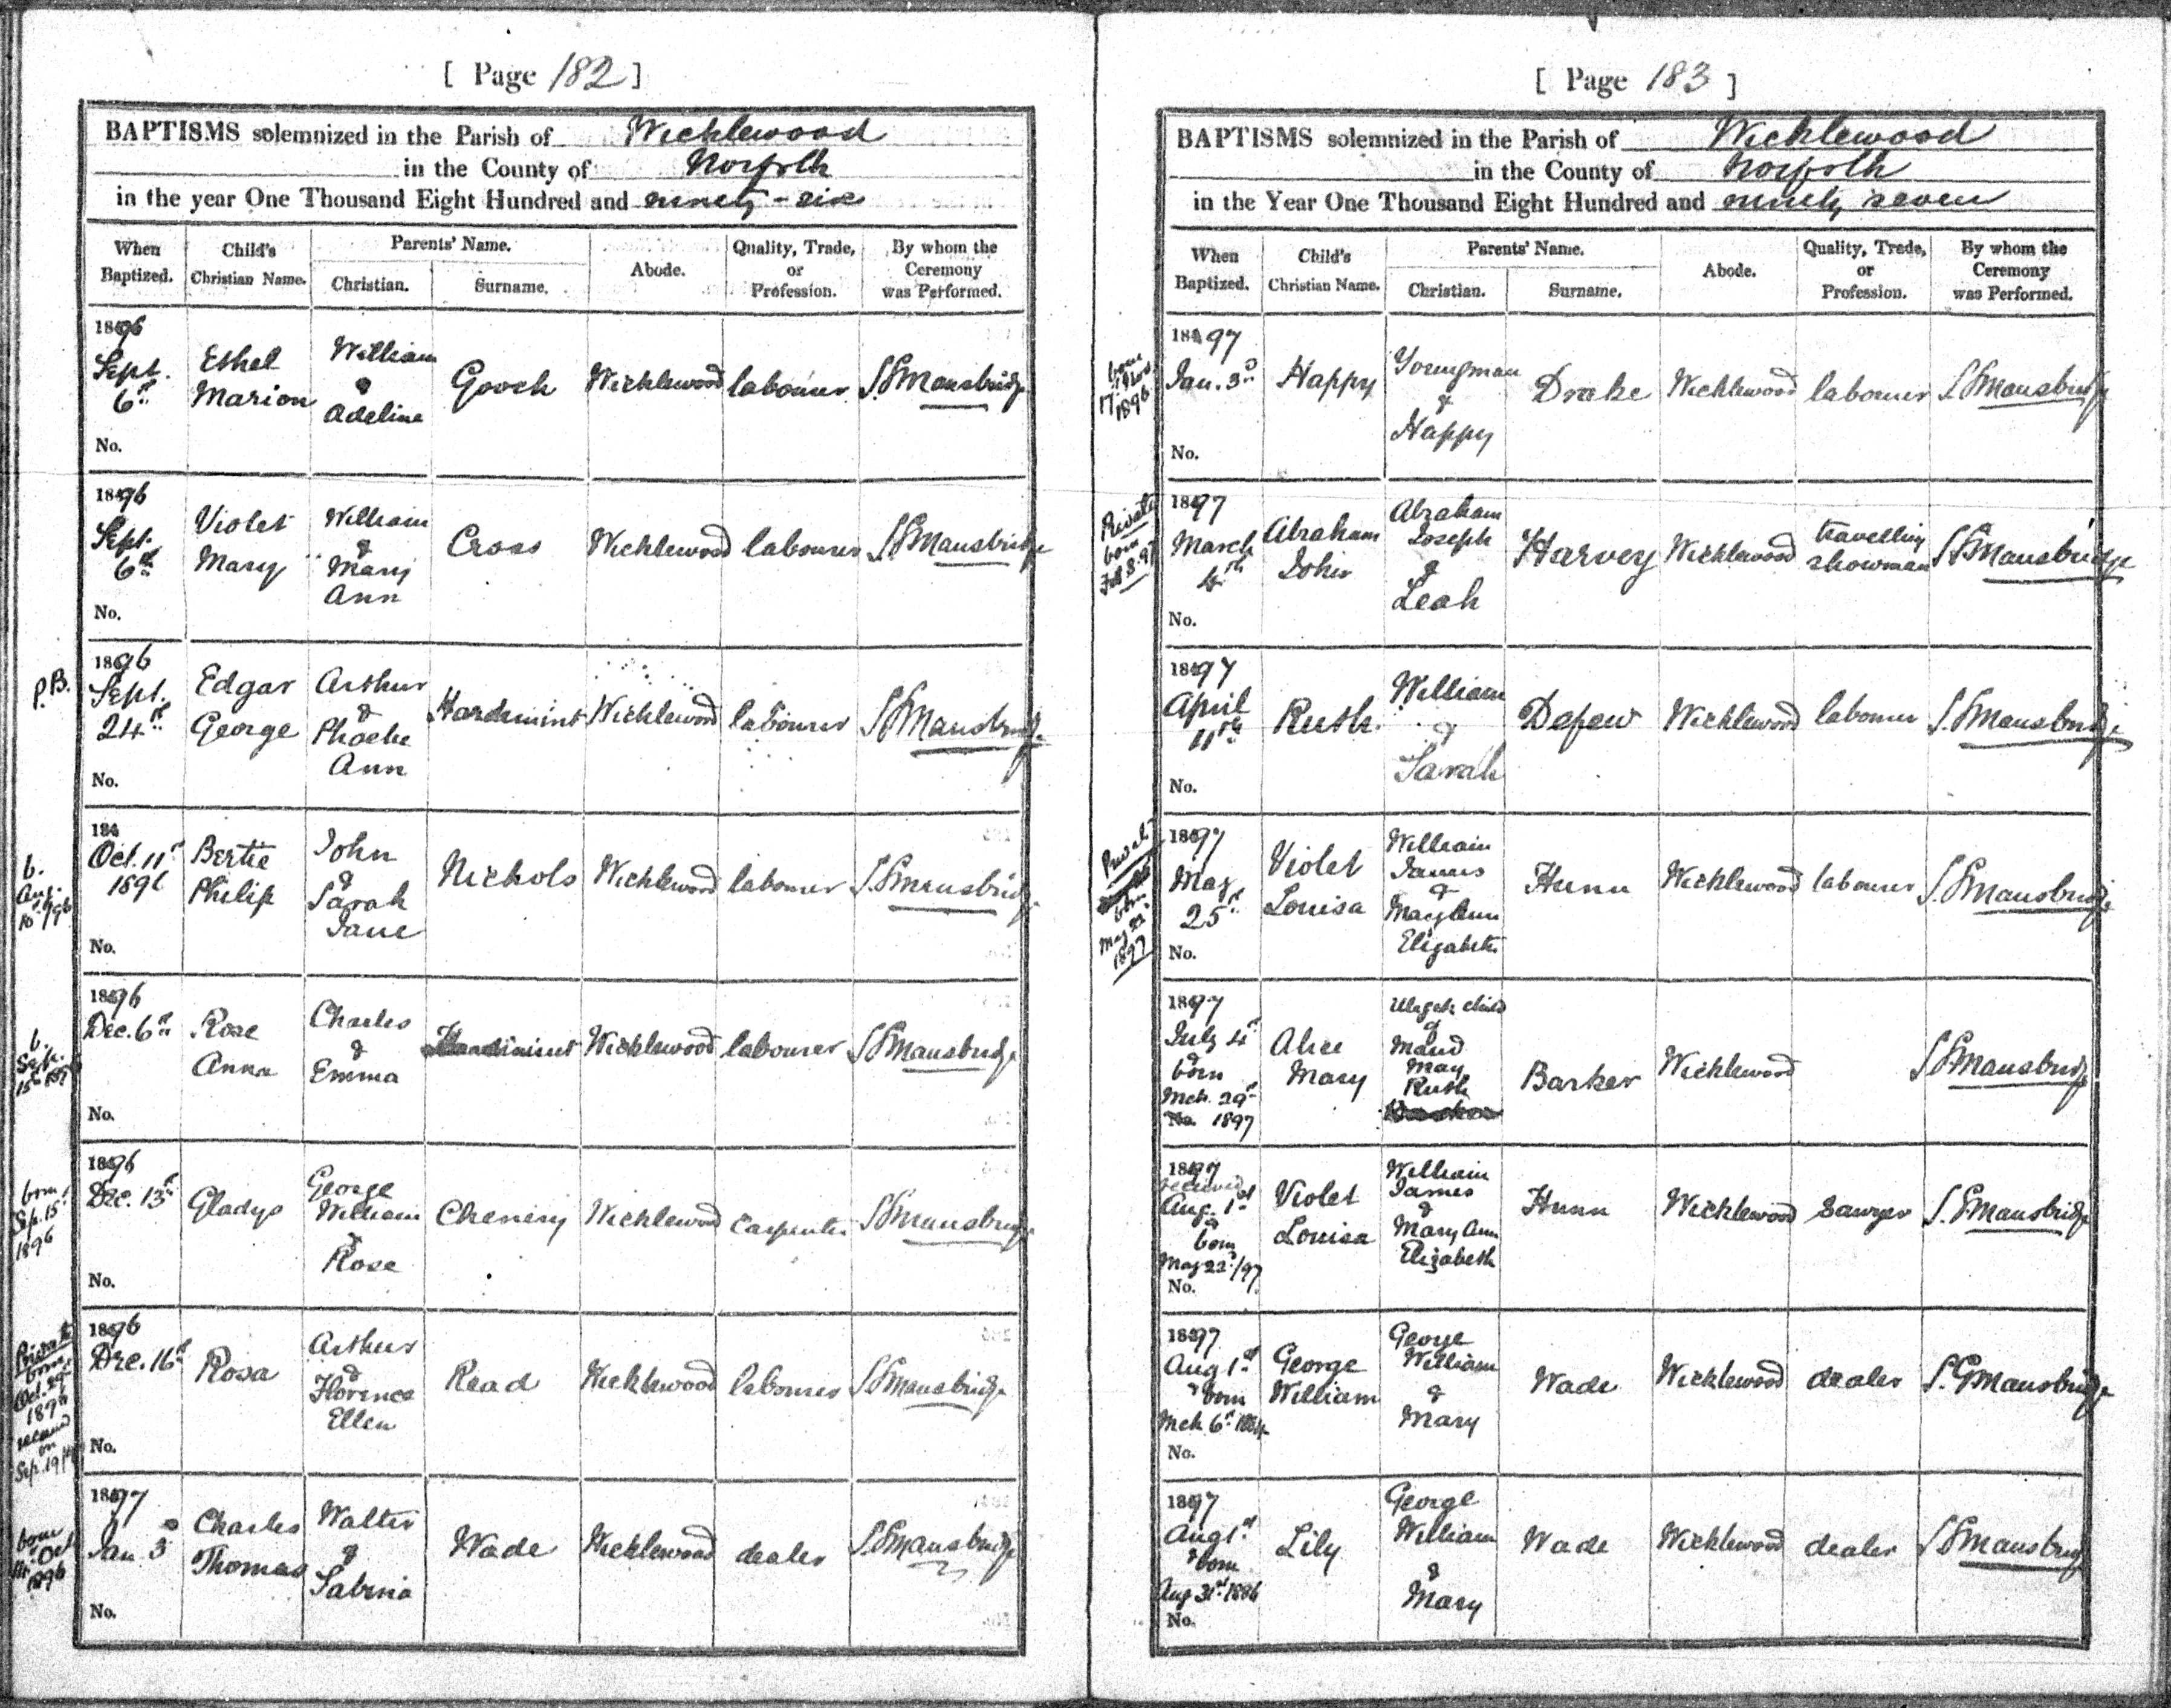 [ Page 182 ]
BAPTISMS solemnized in the Parish of Wicklewood
in the County of Norfolk
in the year One Thousand Eight Hundred and ninety-six
When Baptized. Child's Christian Name. Parents' Name. Christian. Surname. Abode. Quality, Trade, or Profession. By whom the Ceremony was Performed.
1896
Sept. 6th Ethel Marion William & Adeline Gooch Wicklewood labourer S. G. Mansbridge
No.
1896
Sept. 6th Violet Mary William & Mary Ann Cross Wicklewood labourer S. G. Mansbridge
No.
P.B.
1896
Sept. 24th Edgar George Arthur & Phoebe Ann Hardiment Wicklewood labourer S. G. Mansbridge
No.
b. Aug. 10th/96
18
Oct. 11th 1896 Bertie Philip John & Sarah Jane Nichols Wicklewood labourer S. G. Mansbridge
No.
b. Sept. 15th
1896
Dec. 6th Rose Anna Charles & Emma Hardiment Wicklewood labourer S. G. Mansbridge
No.
born Sep. 15th 1896
1896
Dec. 13th Gladys George William & Rose Chenery Wicklewood Carpenter S. G. Mansbridge
No.
Private born Oct. 29th 1896 received on Sep. 19
1896
Dec. 16th Rosa Arthur & Florence Ellen Read Wicklewood labourer S. G. Mansbridge
No.
born Oct 1896
1897
Jan. 3 Charles Thomas Walter & Sabina Wade Wicklewood dealer S. G. Mansbridge
No.
[ Page 183 ]
BAPTISMS solemnized in the Parish of Wicklewood
in the County of Norfolk
in the Year One Thousand Eight Hundred and ninety seven
When Baptized. Child's Christian Name. Parents' Name. Christian. Surname. Abode. Quality, Trade, or Profession. By whom the Ceremony was Performed.
born 17 Nov. 1896
1897
Jan. 3rd Happy Youngman & Happy Drake Wicklewood labourer S. G. Mansbridge
No.
Private born Feb 8. 97
1897
March 4th Abraham John Abraham Joseph & Leah Harvey Wicklewood travelling showman S. G. Mansbridge
No.
1897
April 11th Ruth William & Sarah Depew Wicklewood labourer S. G. Mansbridge
No.
Private born May 22nd 1897
1897
May 25th Violet Louisa William James & Mary Ann Elizabeth Hunn Wicklewood labourer S. G. Mansbridge
No.
1897
July 4th & born Mch. 29th 1897 Alice Mary illegit. child of Maud May Ruth Barker Wicklewood S. G. Mansbridge
No.
1897
received Aug. 1st & born May 22nd/97 Violet Louisa William James & Mary Ann Elizabeth Hunn Wicklewood Sawyer S. G. Mansbridge
No.
1897
Aug 1st & born Mch. 6th George William George William & Mary Wade Wicklewood dealer S. G. Mansbridge
No.
1897
Aug 1st & born Aug 31st 1886 Lily George William & Mary Wade Wicklewood dealer S. G. Mansbridge
No.